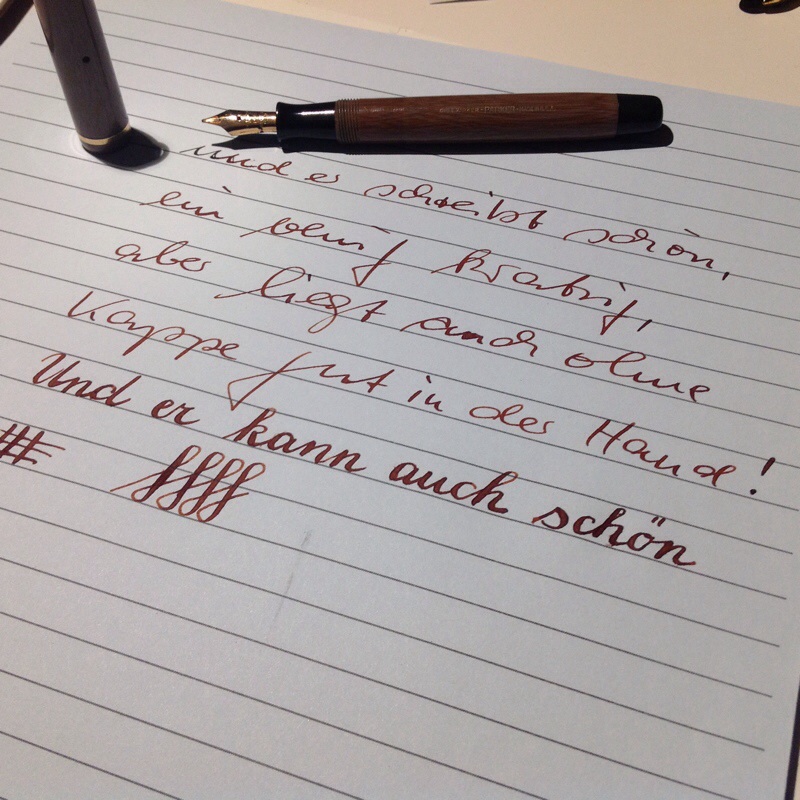 und er schreibt schön,
ein wenig kratzig,
aber liegt auch ohne
Kappe gut in der Hand!
Und er kann auch schön
## ffff